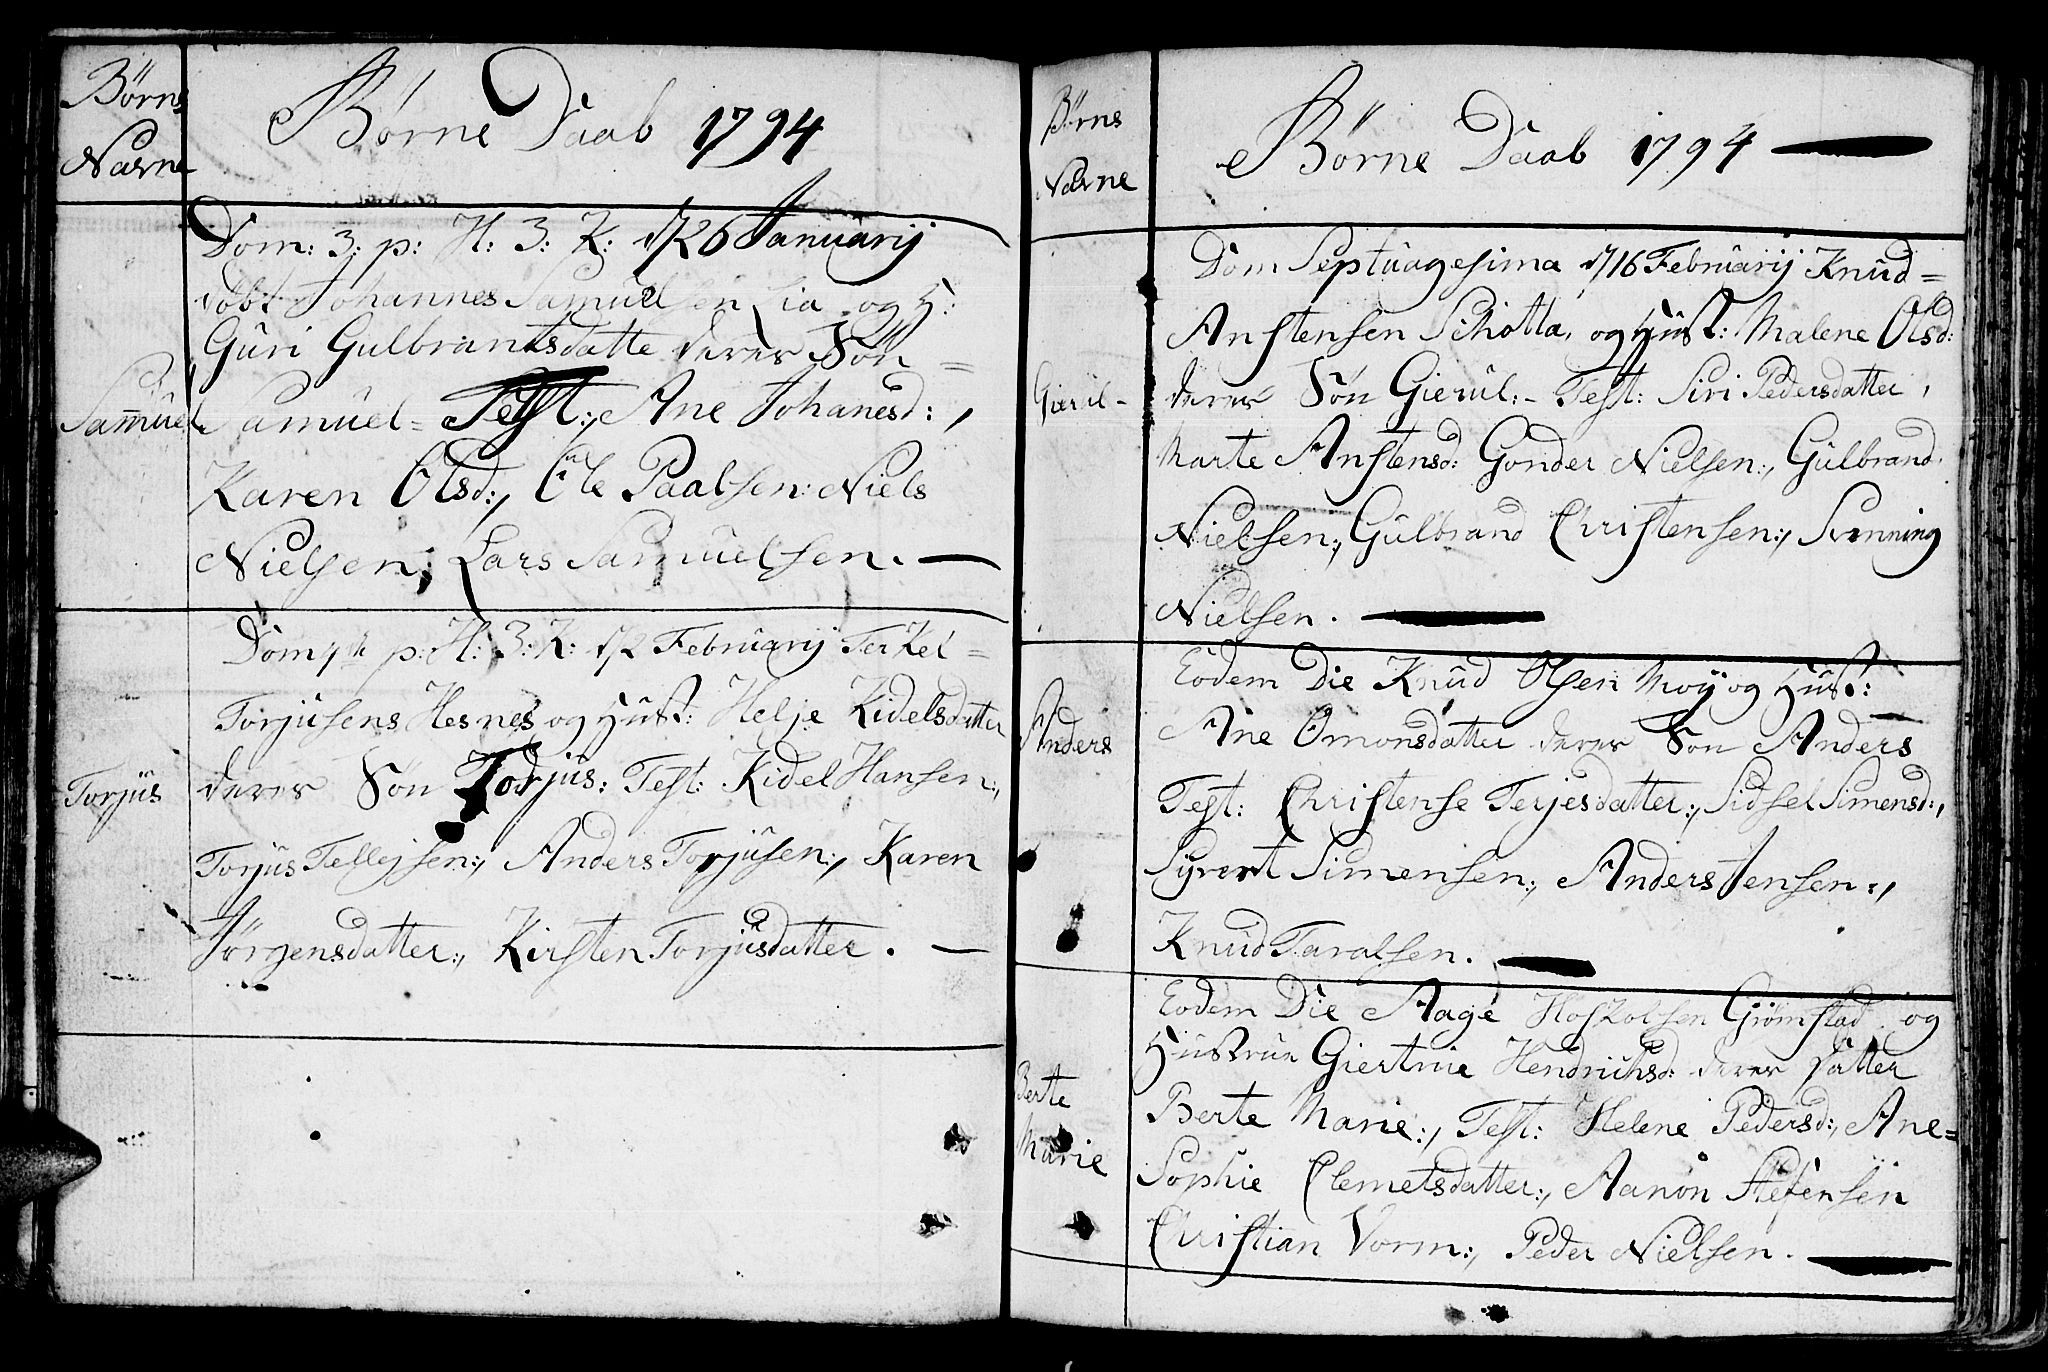 Børns
Navne
Børne Daab 1794
Dom: 3: p: H: 3: K: d/26 Januarij
døbt Johannes Samuelsen Lia og H:
Guri Gulbrantsdatte deres Søn =
Samuel
Samuel = Test:, Ane Johanesd:,
Karen Olsd:, Ole Paalsen: Niels
Nielsen, Lars Samuelsen. —
Dom 4de p: H: 3: K: d/2 Februarij Terkel =
Torjusens Hesnes og Hust: Helje Kidelsdatter
Torjus
deres Søn Torjus: Test: Kidel Hansen:,
Torjus Tellejsen:, Anders Torjusen:, Karen
Jørgensdatter:, Kirsten Torjusdatter. —
Børns
Navne
Børne Daab 1794 —
Dom Septuagesima d/16 Februarij Knud =
Anstensen Schotta, og Hust: Malene Olsd:
Gierul -
deres Søn Gierul: - Test: Siri Pedersdatter,
Marte Anstensd: Gonder Nielsen:, Gulbrand
Nielsen:, Gulbrand Christensen:, Svenning
Nielsen. —
Eodem Die Knud Olsen Moy og Hust:
Anders
Ane Omonsdatter deres Søn Anders
Test: Christense Terjesdatter:, Sidsel Simensd:,
Syvert Simensen:, Anders Jensen:,
Knud Taralsen. —
Eodem Die Aage Hoskolsen Grømstad og
Hustrue Giertrue Hendrichsd: deres Datter
Berte
Marie
Berte Marie:, Test: Helene Pedersd:, Ane =
Sophie Clemetsdatter:, Aanon Stefensen
Christian Vorm:, Peder Nielsen. —